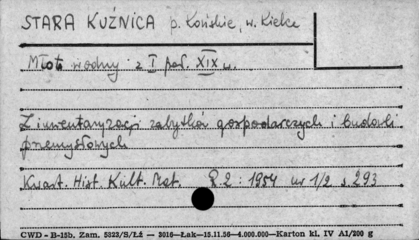 STARA KUŹNICA p. Końskie, w. Kielce
Młot wodny z I poł. XIX w.
Z inwentaryzacji zabytków gospodarczych i budowli
przemysłowych
Kwart. Hist. Kult. Mat. R.2 : 1954 nr 1/2 s. 293
CWD - B-15b. Zam. 5323/S/Łź — 3016—Łak—15.11.56—4.000.000—Karton kl. IV A1/200 g